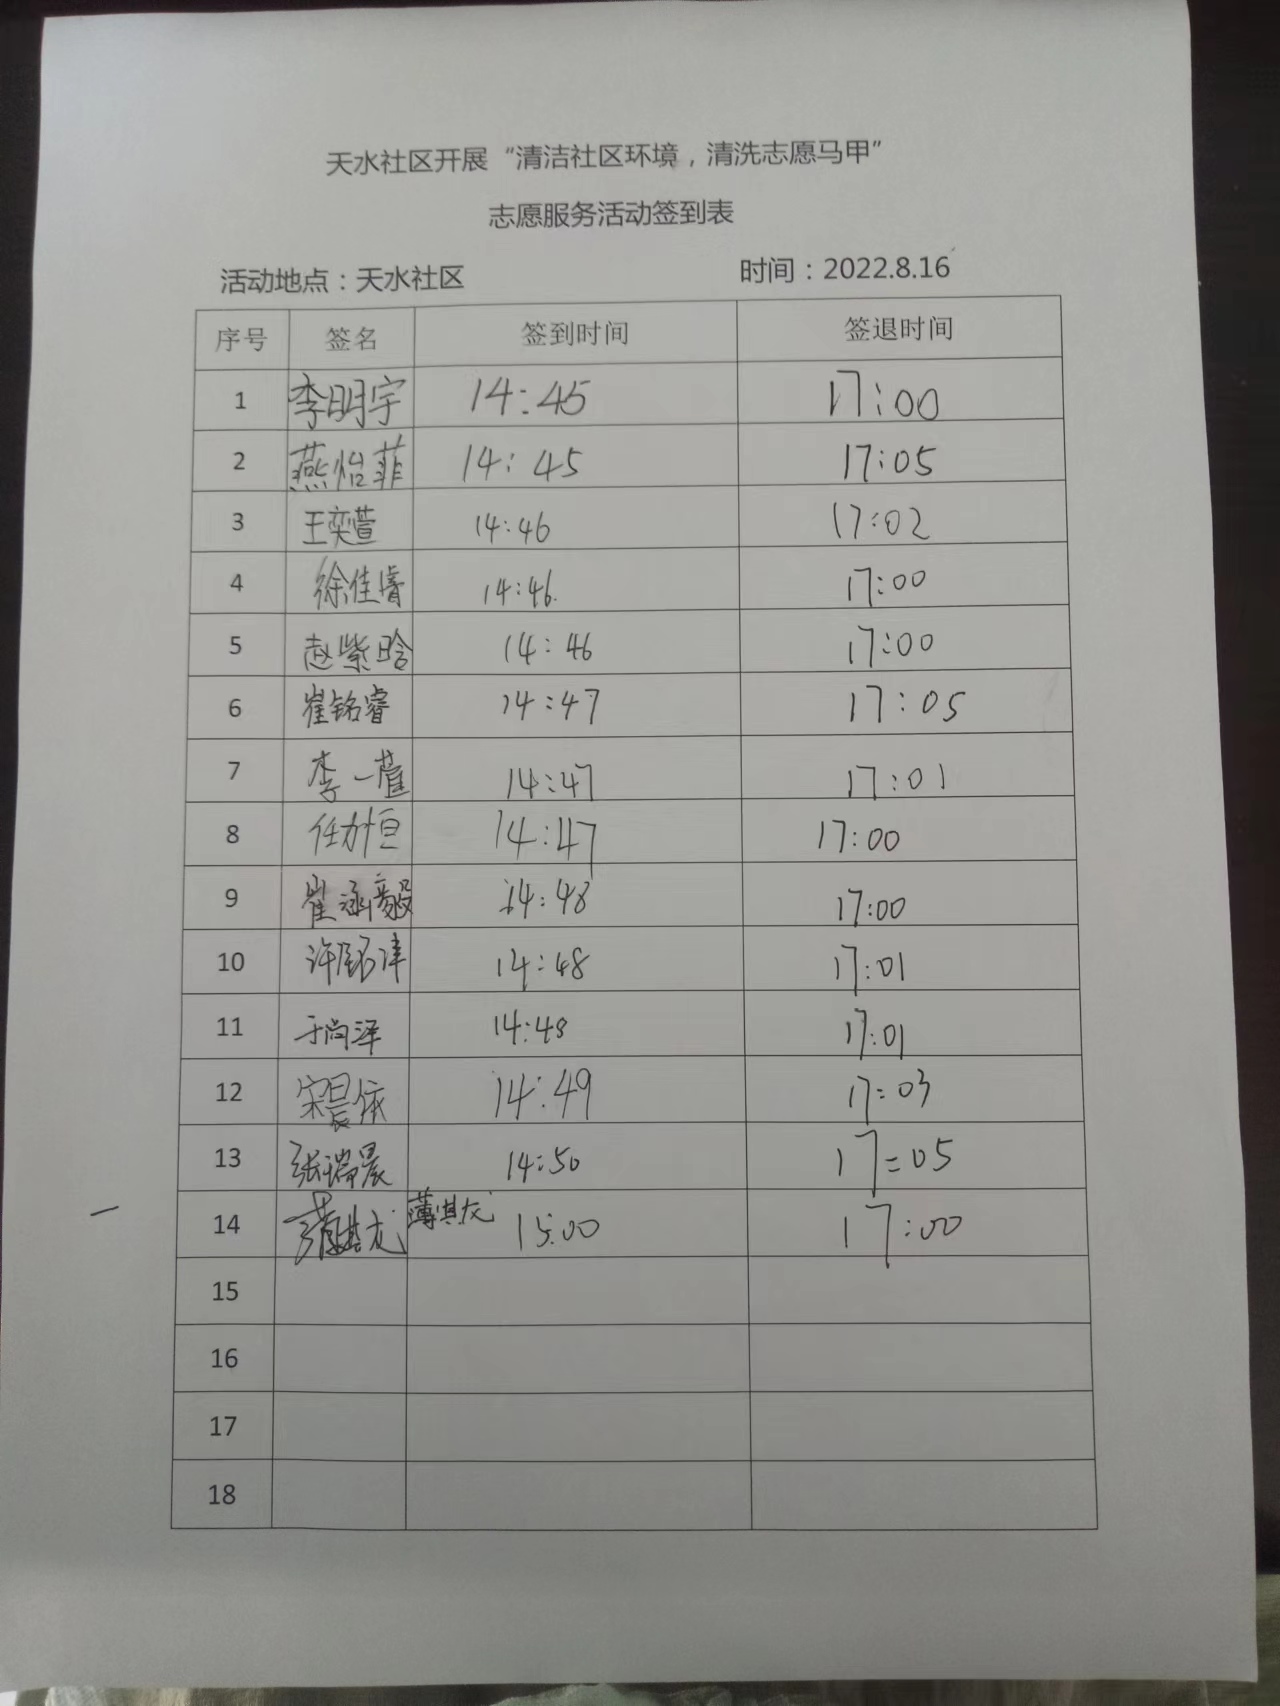 天水社区开展“清洁社区环境，清洗志愿马甲”
志愿服务活动签到表
活动地点：天水社区 时间：2022.8.16
序号 签名 签到时间 签退时间
1 李明宇 14:45 17:00
2 燕怡菲 14:45 17:05
3 王奕萱 14:46 17:02
4 徐佳睿 14:46 17:00
5 赵紫晗 14:46 17:00
6 崔铭睿 14:47 17:05
7 李一萱 14:47 17:01
8 任 恒 14:47 17:00
9 崔涵毅 14:48 17:00
10 许 14:48 17:01
11 于尚泽 14:48 17:01
12 宋晨依 14:49 17:03
13 张瑞晨 14:50 17:05
14 薄其龙 薄其龙 15:00 17:00
15
16
17
18